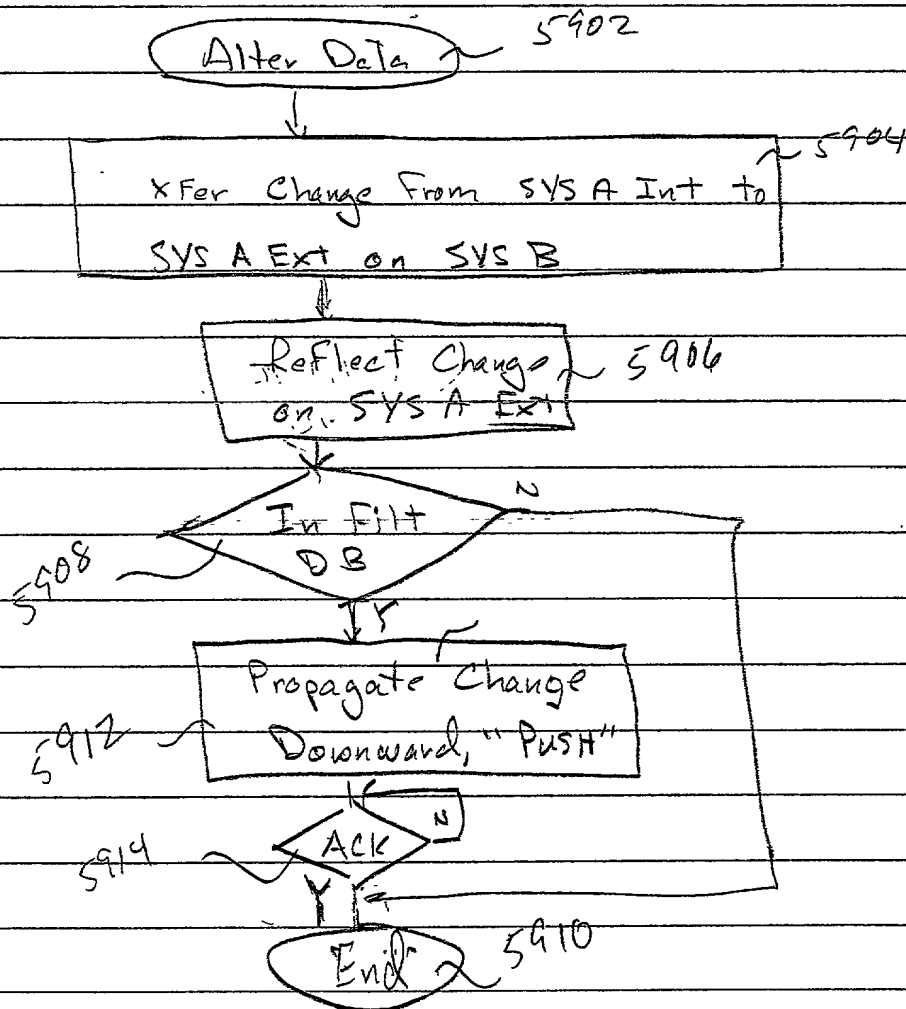 5902
Alter Data
5904
XFer Change From SYS A Int to
SYS A Ext on SYS B
Reflect Change
5906
on SYS A Ext
N
In Filt
DB
5908
Y
Propagate Change
Downward, "PUSH"
5912
N
ACK
5914
Y
End
5910